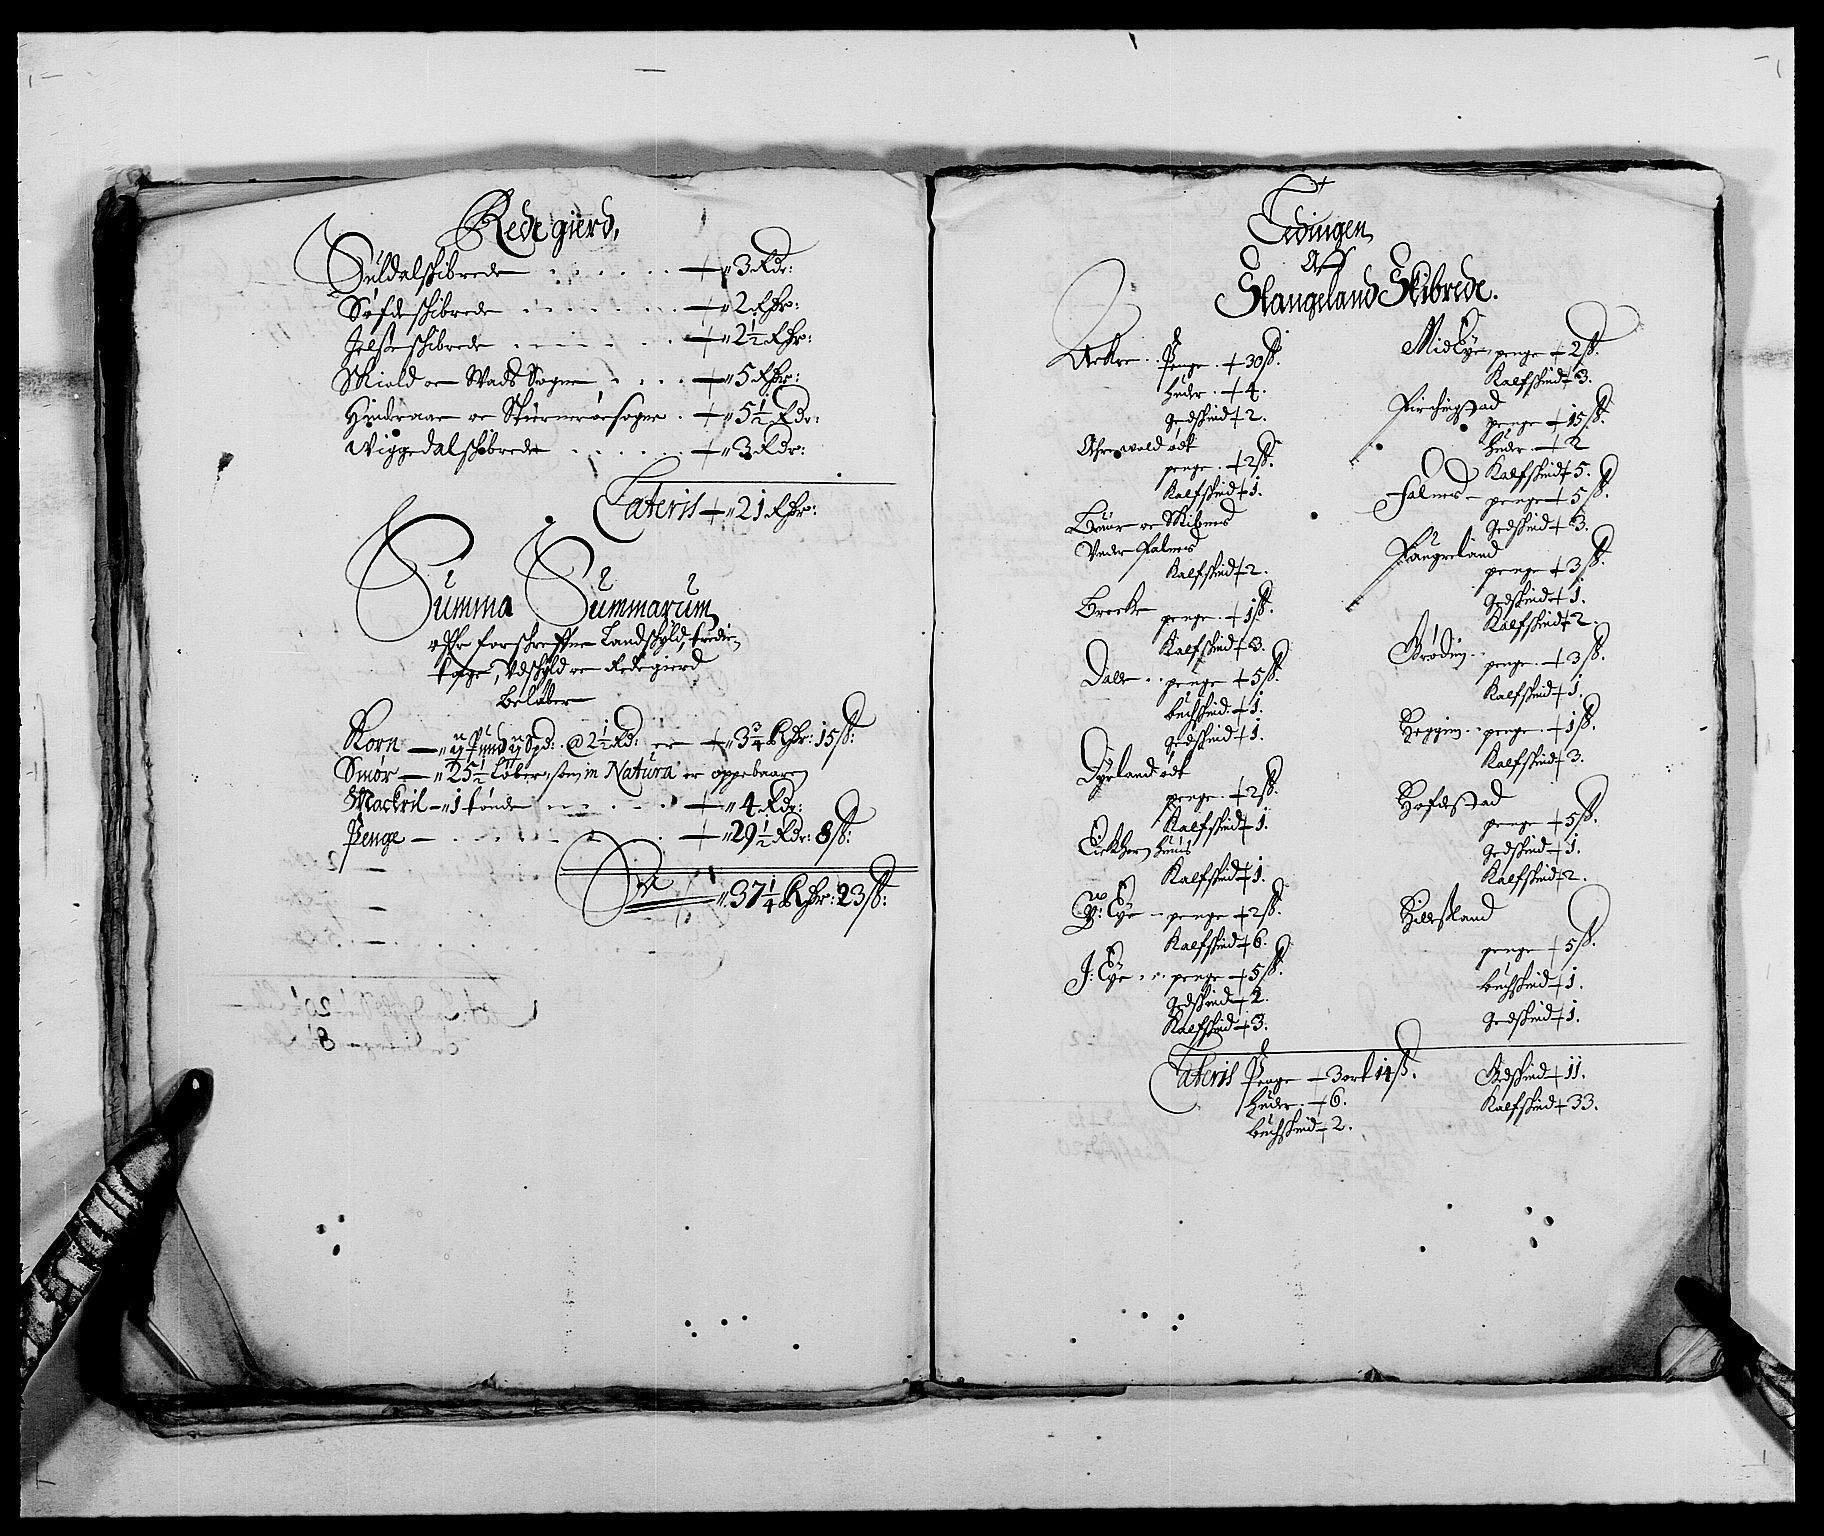 Rede gierd,
Suldalschibrede . . . . . . — 3 Rdr:
Søfdeschibrede . . . . . . — 2 Rdr:
Jelsøeschibrede . . . . . . — 2½ Rdr:
Skiold oc Wads Sogne . . . . — 5 Rdr:
Hinderaae oc Stuernerøesogne . — 5½ Rdr:
Wiggedalschibrede . . . . . . — 3 Rdr:
Lateris — 21 Rdr:
Summa Summarum
effr forschreffne Landschyld, tredie
tage, Vdschyld oc Redegierd
Beløber
Korn — ½ Pund ½ Spd: @ 2½ Rd: er — 3¾ Rdr: 15 ß:
Smør — 25½ Løber, som in Natura er oppebaaren
Mackril — 1 tønde . . . . — 4 Rdr:
Penge — . . . . . . — 29½ Rdr: 8 ß:
37¼ Rdr: 23 ß:
Tedingen
Aff
Slangeland Skibrede.
Ackre . . Penge . — 30 ß.
Huder . — 4.
Gedskind — 2.
Ahrewold ødt
penge . — 2 ß.
Kalfskind — 1.
Buar oc Skibnes
Vnder Falnes
Kalfskind — 2.
Brecke penge . — 1 ß.
Kalfskind — 3.
Dale . . penge — 5 ß.
Buchskind — 1.
Gedskind — 1.
Dyrland ødt
penge . — 2 ß.
Kalfskind — 1.
Eickhern huus
Kalfskind — 1.
Y: Eye — penge — 2 ß.
Kalfskind — 6.
J: Eye . . penge — 5 ß.
Gedskind — 2.
Kalfskind — 3.
Mid Eye, penge — 2 ß.
Kalfskind — 3.
Firchingstad
penge — 15 ß.
Huder — 2
Kalfskind — 5.
Falnes — penge — 5 ß.
Gedskind — 3.
Faugreland
penge — 3 ß.
Gedskind — 1.
Kalfskind — 2.
Grødem . .
penge . — 3 ß.
Kalfskind — 1.
Heggim . . penge . — 1 ß.
Kalfskind — 3.
Hofdestad
penge — 5 ß.
Gedskind — 1.
Kalfskind — 2.
Hillesland
penge — 5 ß.
Buchskind — 1.
Gedskind — 1.
Lateris Penge — 3 ort 14 ß.
Huder . — 6.
Buchskind — 2.
Gedskind — 11.
Kalfskind — 33.